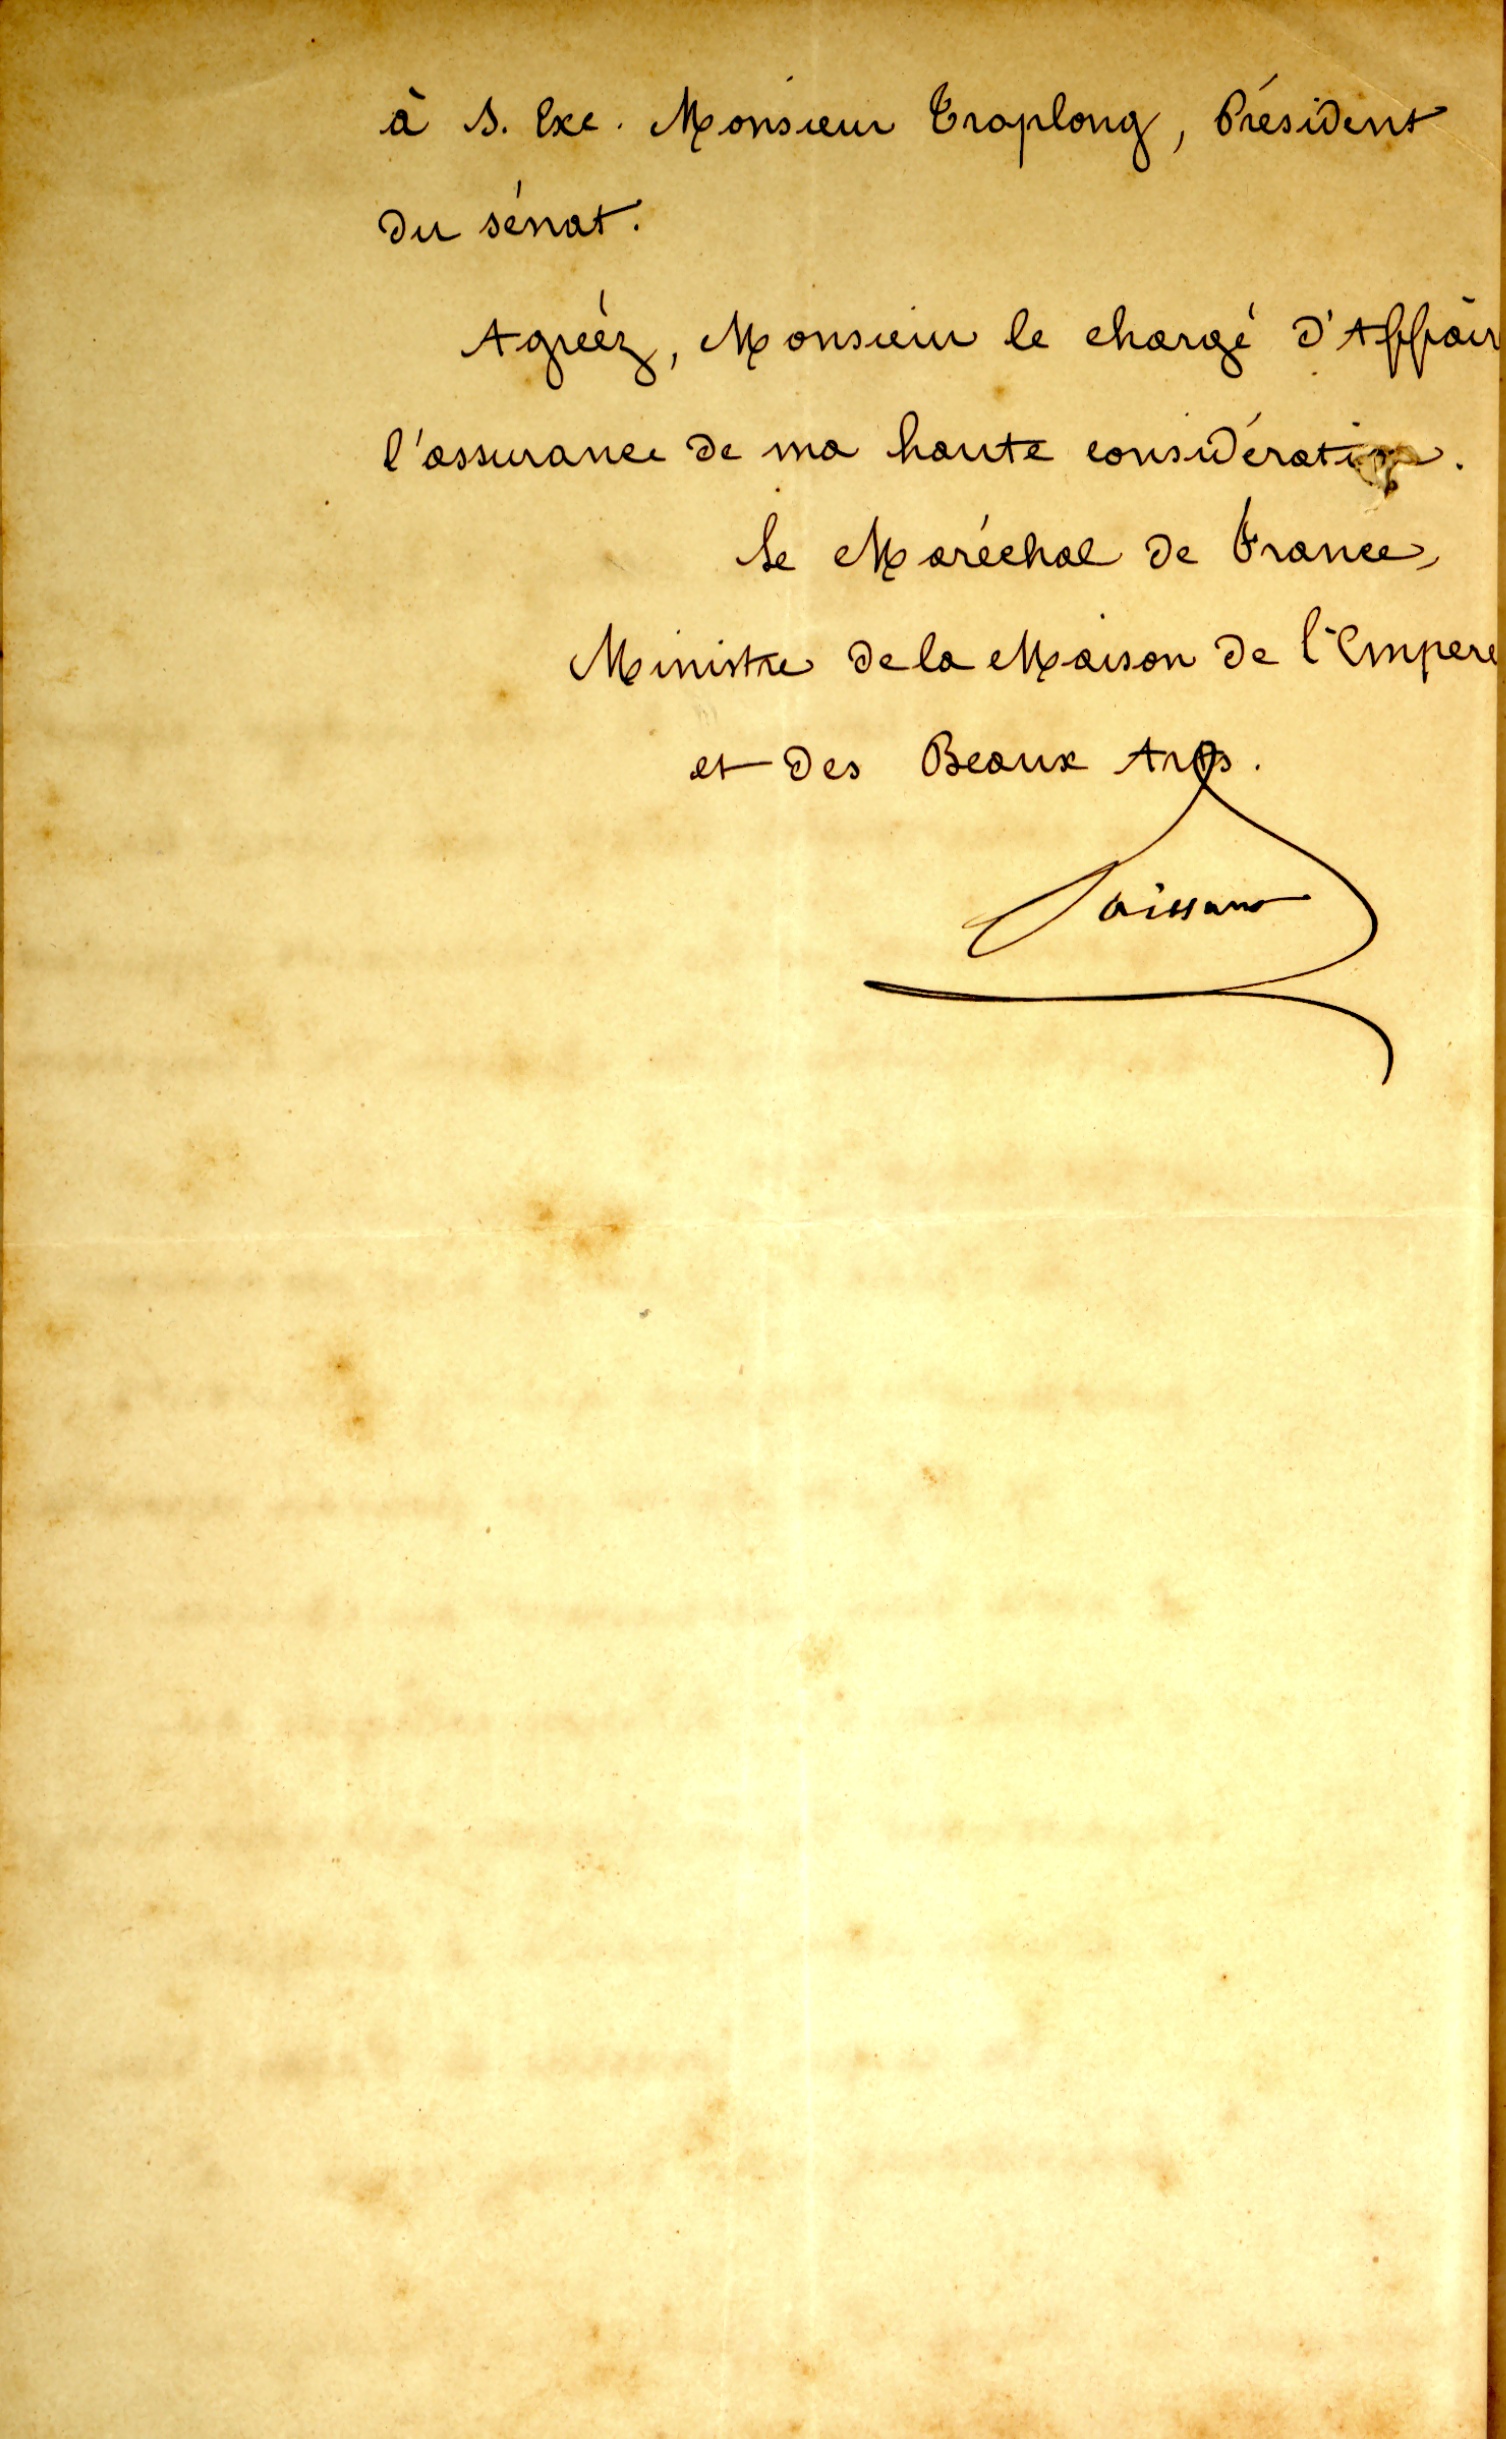 à S. Exc. Monsieur Troplong, Président
du sénat.
Agréez, Monsieur le chargé d'Affair
l'assurance de ma haute considération.
Le Maréchal de France,
Ministre de la Maison de l'Empere
et des Beaux Arts.
Vaillant